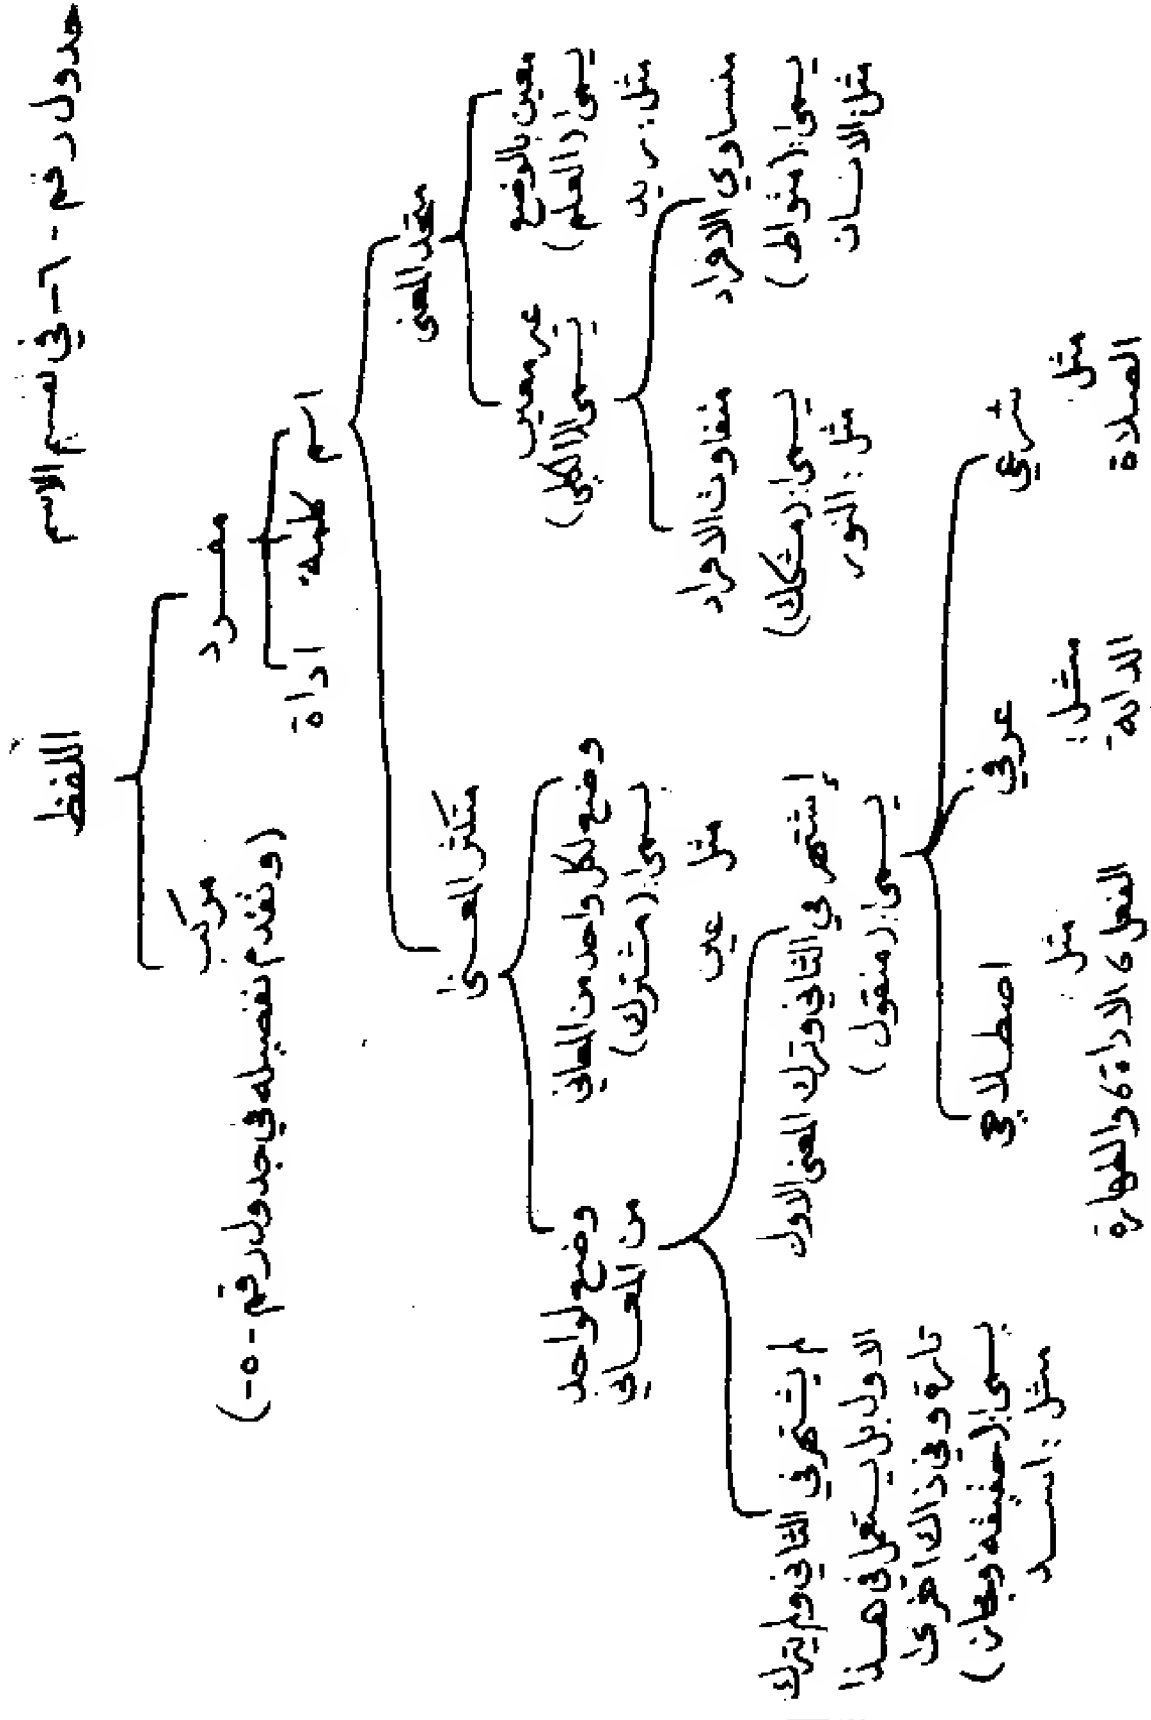 جدول رقم - ٦ - في تقسيم الاسم
اللفظ
مفرد
مركب
(وتقدم تفصيله في جدول رقم - ٥ -)
اسم
كلمة
اداة
متحد المعنى
متكثر المعنى
معين بالوضع
يسمى (العلم)
مثل: زيد
غير معين
يسمى (الكلي)
متساوي الافراد
يسمى: (متواط)
مثل: الانسان
متفاوت الافراد
يسمى: (مشكك)
مثل: النور
وضع لكل واحد من المعاني
يسمى: (مشترك)
مثل
عين
وضع لواحد
من المعاني
إشتهر في الثاني وترك المعنى الاول
يسمى: (منقول)
شرعي
مثل
الصلاة
عرفي
مثل:
الدابة
اصطلاحي
مثل
الفعل، الاداة، والطهارة
لم يشتهر في الثاني ولم يترك
الاول بل يستعمل في هذا
تارة وفي ذاك اخرى
يسمى: (حقيقة ومجاز)
مثل: اسد